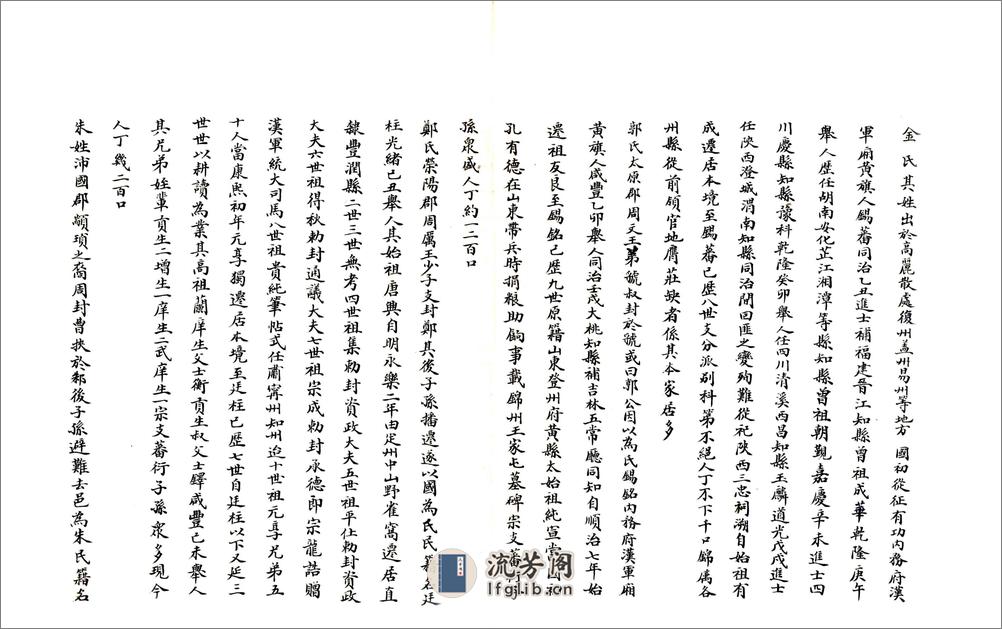 金氏其姓出於高麗散處復州蓋州易州等地方 國初從征有功內務府漢
軍廂黃旗人錫蕃同治乙丑進士補福建晉江知縣曾祖成華乾隆庚午
舉人歷任胡南安化芷江湘潭等縣知縣曾祖朝覲嘉慶辛未進士四
川慶縣知縣豫科乾隆癸卯舉人任四川清溪西昌知縣玉麟道光戊戌進士
任陝西澄城渭南知縣同治間回匪之變殉難從祀陝西三忠祠溯自始祖有
成遷居本境至錫蕃已歷八世支分派别科第不絕人丁不下千口錦属各
州縣從前領官地膺莊缺者係其本家居多
郭氏太原郡周文王弟虢叔封於虢或曰郭公因以為氏錫銘內務府漢軍廂
黃旗人咸豐乙卯舉人同治壬戌大桃知縣補吉林五常廳同知自順治七年始
遷祖友良至錫銘已歷九世原籍山東登州府黃縣太始祖純宣當
孔有德在山東帶兵時捐粮助餉事載錦州王家屯墓碑宗支蕃
孫衆盛人丁約一二百口
鄭氏榮陽郡周厲王少子支封鄭其後子孫播遷遂以國為氏民籍名廷
柱光緒己丑舉人其始祖唐興自明永樂二年由定州中山野雀窩遷居直
隸豐潤縣二世三世無考四世祖集勅封資政大夫五世祖平仕勅封資政
大夫六世祖得秋勅封通議大夫七世祖宗成勅封承德郎宗龍誥贈
漢軍統大司馬八世祖貴純筆帖式任肅寧州知州迨十世祖元享兄弟五
十人當康熙初年元享獨遷居本境至廷柱已歷七世自廷柱以下又延三
世世以耕讀為業其高祖蘭庠生父士衡貢生叔父士鐸咸豐己未舉人
其兄弟姪輩貢生二增生一庠生二武庠生一宗支蕃衍子孫衆多現今
人丁幾二百口
朱姓沛國郡顓頊之裔周封曹挾於邾後子孫避難去邑為朱氏籍名
流芳閣
lfglib.com